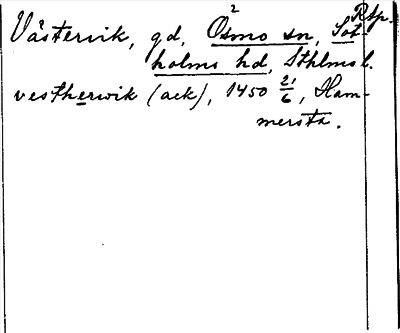 Rsp.
Västervik, gd, Ösmo² sn, Sot-
holms hd, Sthlms l.
vestherwik (ack), 1450 21/6, Ham-
mersta.